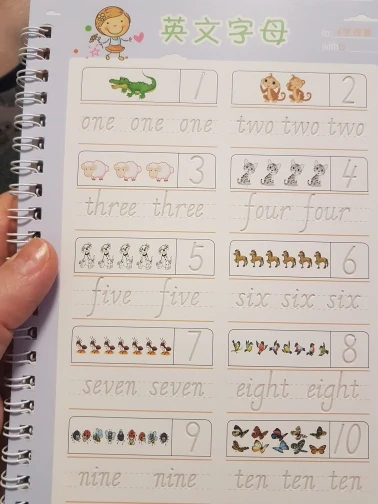 英文字母
1 2
one one one two two two
3 4
three three four four
5 6
five five six six six
7 8
seven seven eight eight
9 10
nine nine ten ten ten